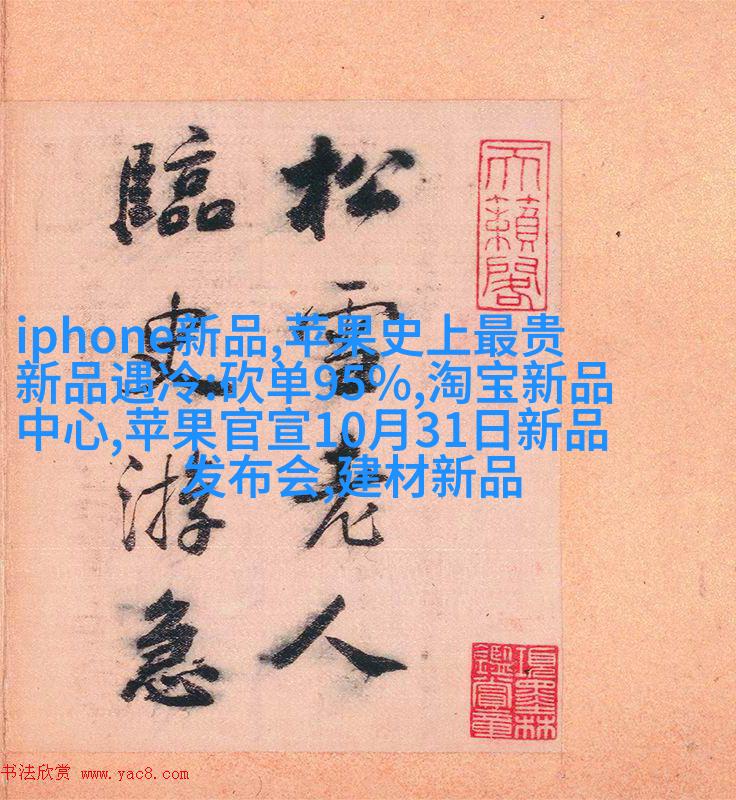 松雪老人
臨史游急
天籟閣
項墨林
鑑賞章
iphone新品,苹果史上最贵
新品遇冷:砍单95%,淘宝新品
中心,苹果官宣10月31日新品
发布会,建材新品
书法欣赏 www.yac8.com